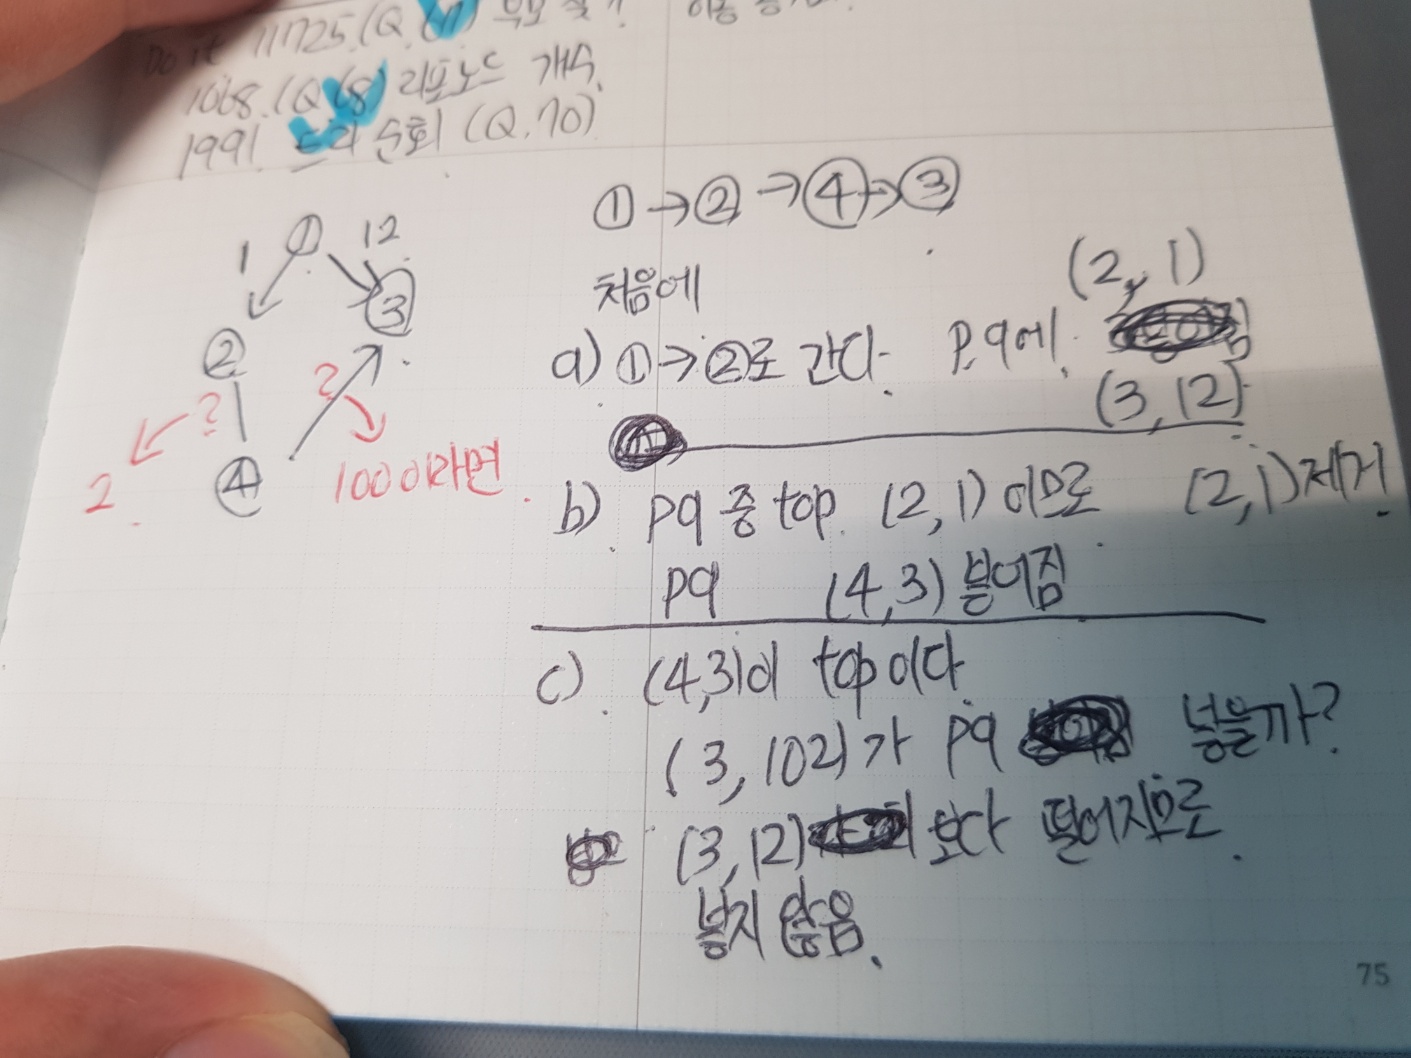 Do it 11725.(Q.
1068.(Q 68) 리프노드 개수
1991 트리 순회 (Q.70)
① → ② → ④ → ③
1 ① 12
② ③
? ?
2 ④ 100이라면
처음에 (2, 1)
a) ① → ②로 간다. P.q에
(3, 12)
b) pq 중 top (2,1) 이므로 (2,1) 제거
pq (4,3) 붙어짐
c) (4,3)이 top이다
(3, 102)가 pq 넣을까?
(3, 12) 보다 떨어지므로
넣지 않음.
75